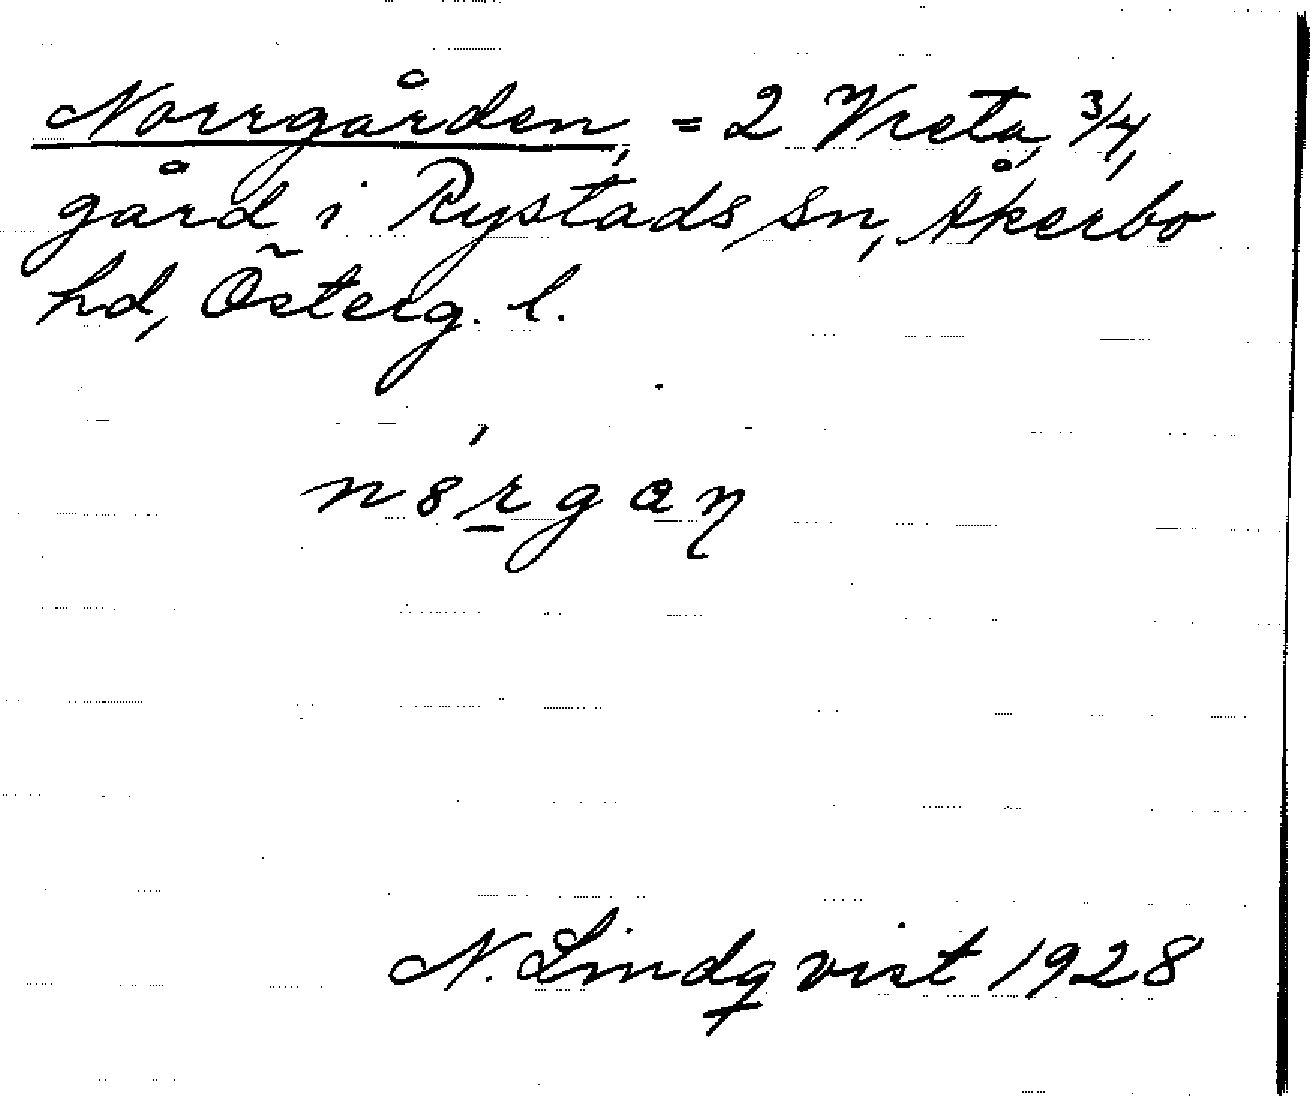 Norrgården, = 2 Vreta, 3/4,
gård i Rystads sn, Åkerbo
hd, Österg. l.
n8́r̲gaŋ
N. Lindqvist 1928